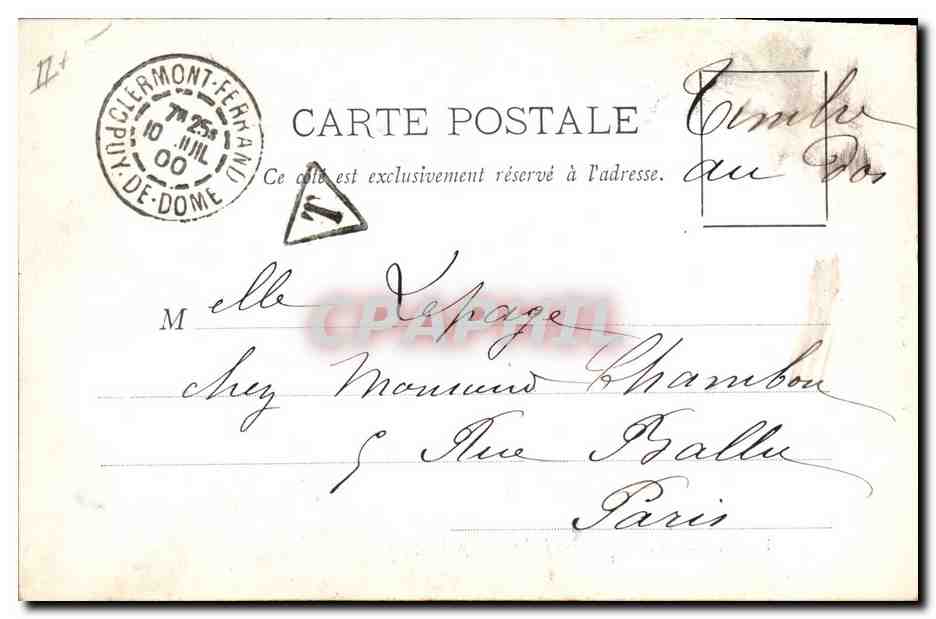 CLERMONT-FERRAND
PUY-DE-DOME
7M 25S
10 JUIL
00
CARTE POSTALE
Ce côté est exclusivement réservé à l'adresse.
Timbre
au dos
T
Melle Lepage
CPAPHIL
chez Monsieur Chambon
5 Rue Ballu
Paris